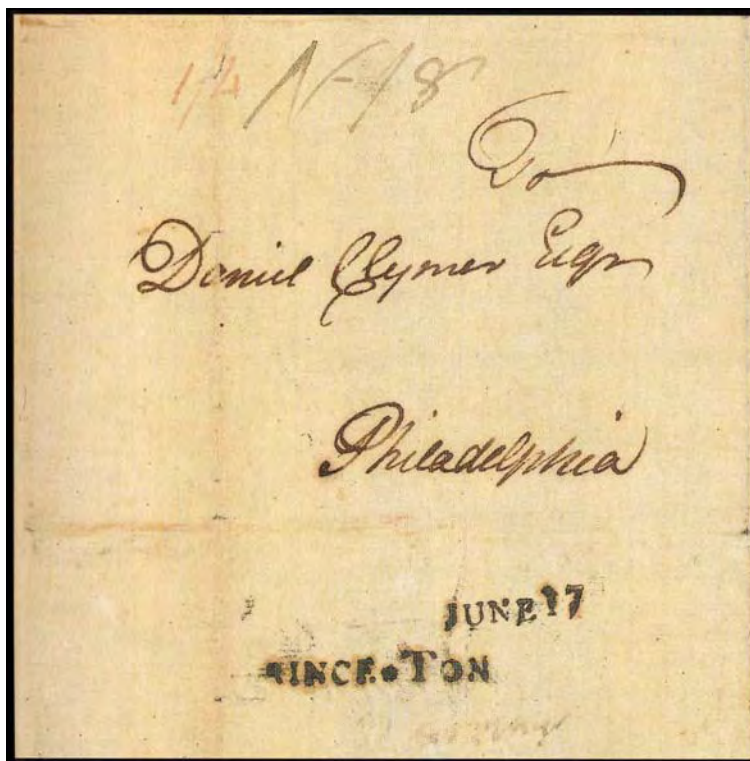 1/4 N-18
To
Daniel Clymer Esqr
Philadelphia
JUNE 17
RINCE•TON